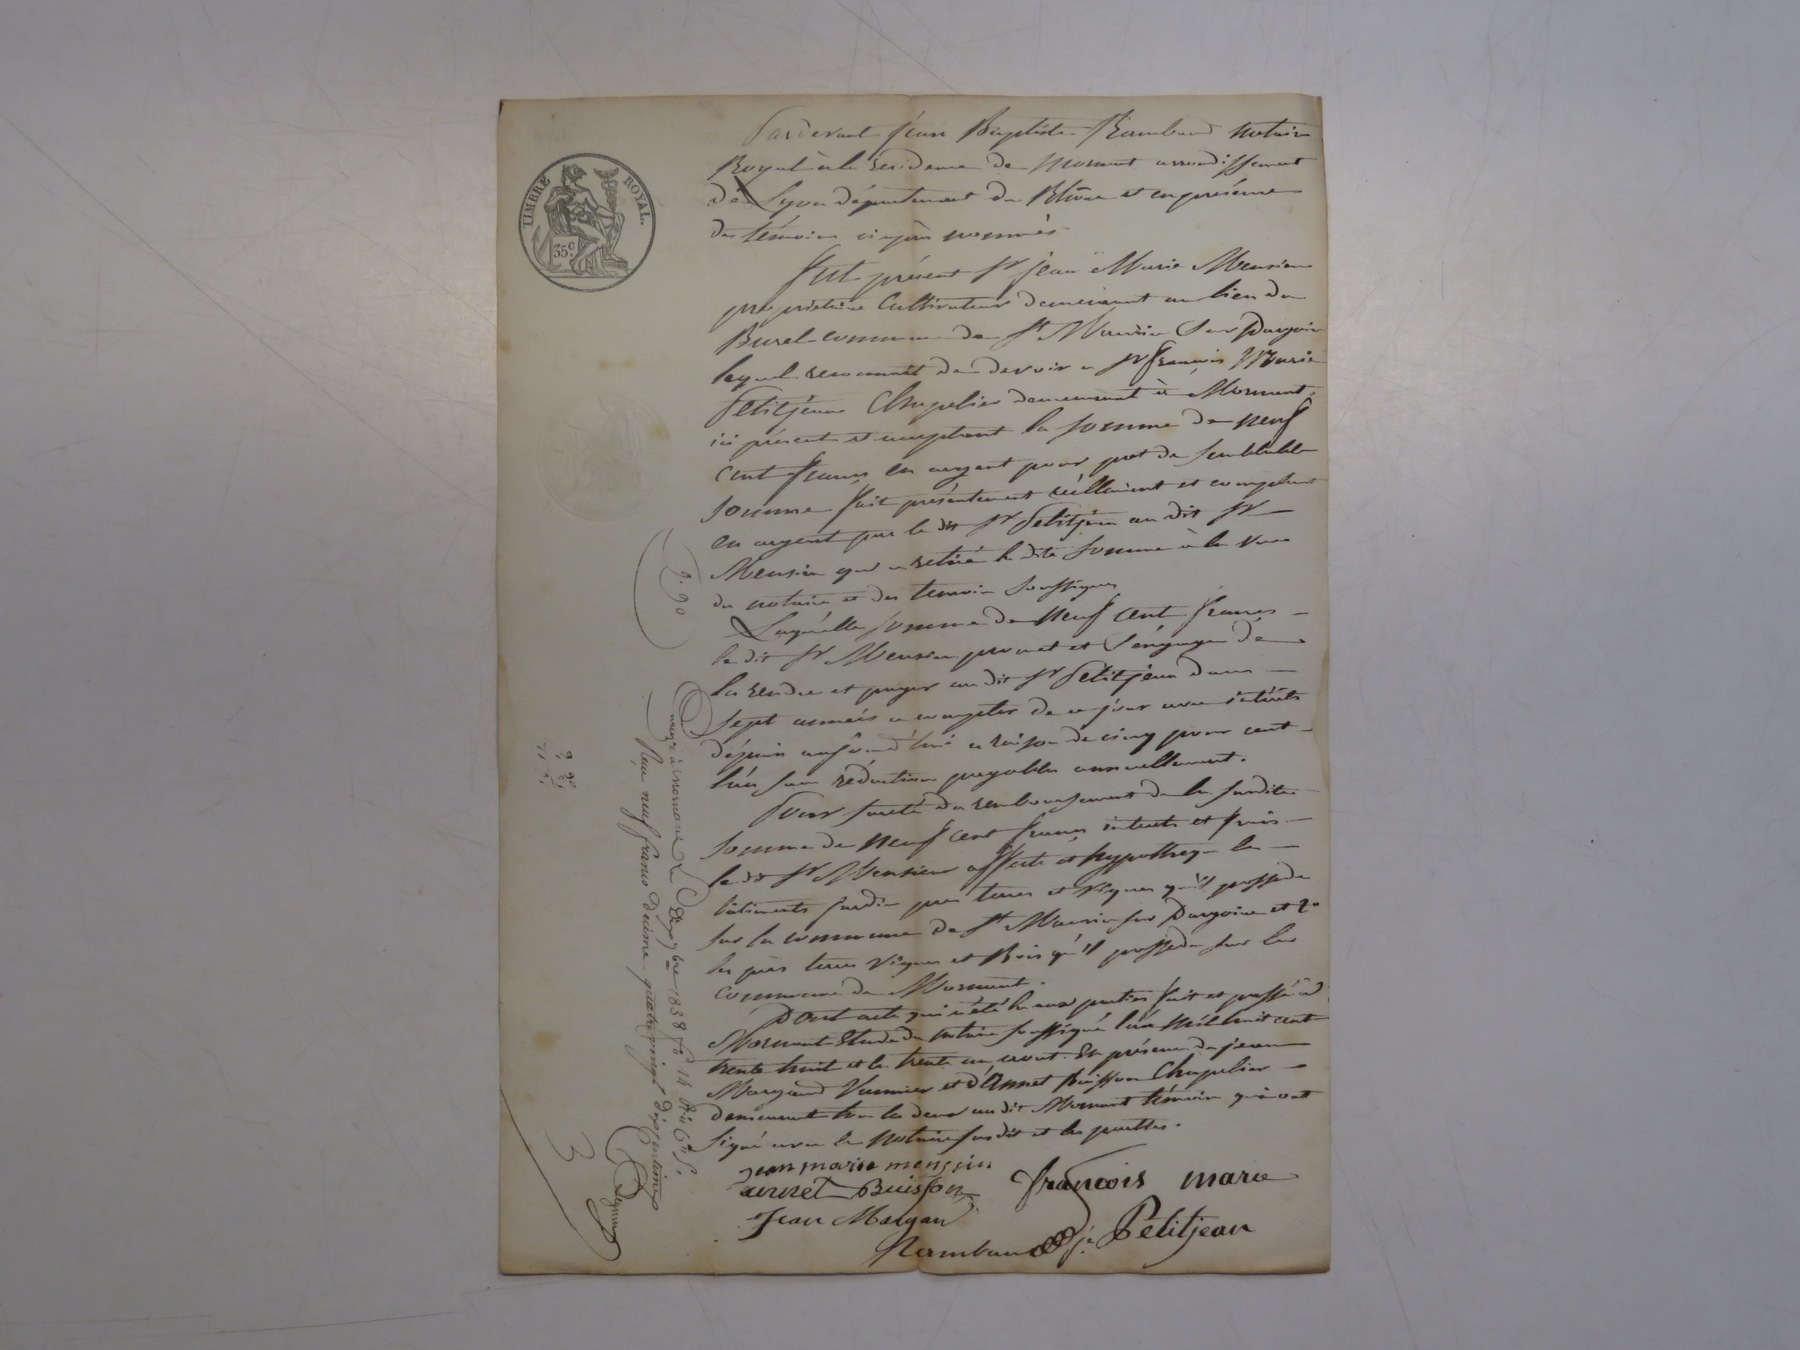 TIMBRE ROYAL.
35 C.
Pardevant Jean Baptiste Rambaud Notaire
Royal à la résidence de Mornant arrondissement
de Lyon département du Rhône et en présence
des témoins ci après nommés
Fut présent Sr jean Marie Mensieu
propriétaire Cultivateur demeurant au lieu du
Burel commune de St Maurice Sur Dargoire
lequel reconnait de devoir a Sr françois Marie
Petitjean Chapelier demeurant à Mornant,
ici présent et acceptant la somme de neuf
cent francs en argent pour pret de semblable
somme fait présentement réellement et comptant
en argent par le dit Sr Petitjean au dit Sr
Mensieu qui a retiré la dite somme à la vue
du notaire et des temoin soussignes
Laquelle somme de neuf cent francs
le dit Sr Mensieu promet et s'engage de
la rendre et payer au dit Sr Petitjean dans
sept années a compter de ce jour avec intérêts
depuis aujourd'hui a raison de cinq pour cent
l'an sans réduction payables annuellement.
Pour sureté du remboursement de la susdite
somme de neuf cent francs intérêts et frais
le dit Sr Mensieu affecte et hypothèque les
bâtiments jardin pres terres et vignes qu'il possede
sur la commune de St Maurice sur Dargoire et 2º
les près terres vignes et Bois qu'il possede sur la
commune de Mornant.
Dont acte qui a été lu aux parties fait et passé à
Mornant Etude du notaire soussigné l'an mil huit cent
trente huit et le trente un aout. En présence de jean
Margand Vannier et d'Annet Buisson Chapelier
demeurant tous les deux au dit Mornant témoin qui ont
signé avec le Notaire susdit et les parties.
jean marie mensieu
annet Buisson
Jean Margan
françois marie
Petitjean
Rambaud
9. 90
Enregé à Mornant Le Sept 7bre 1838 fo 14 Ro C 6 et S.
Reçu neuf francs décime quatre vingt dix centimes
9 90
3